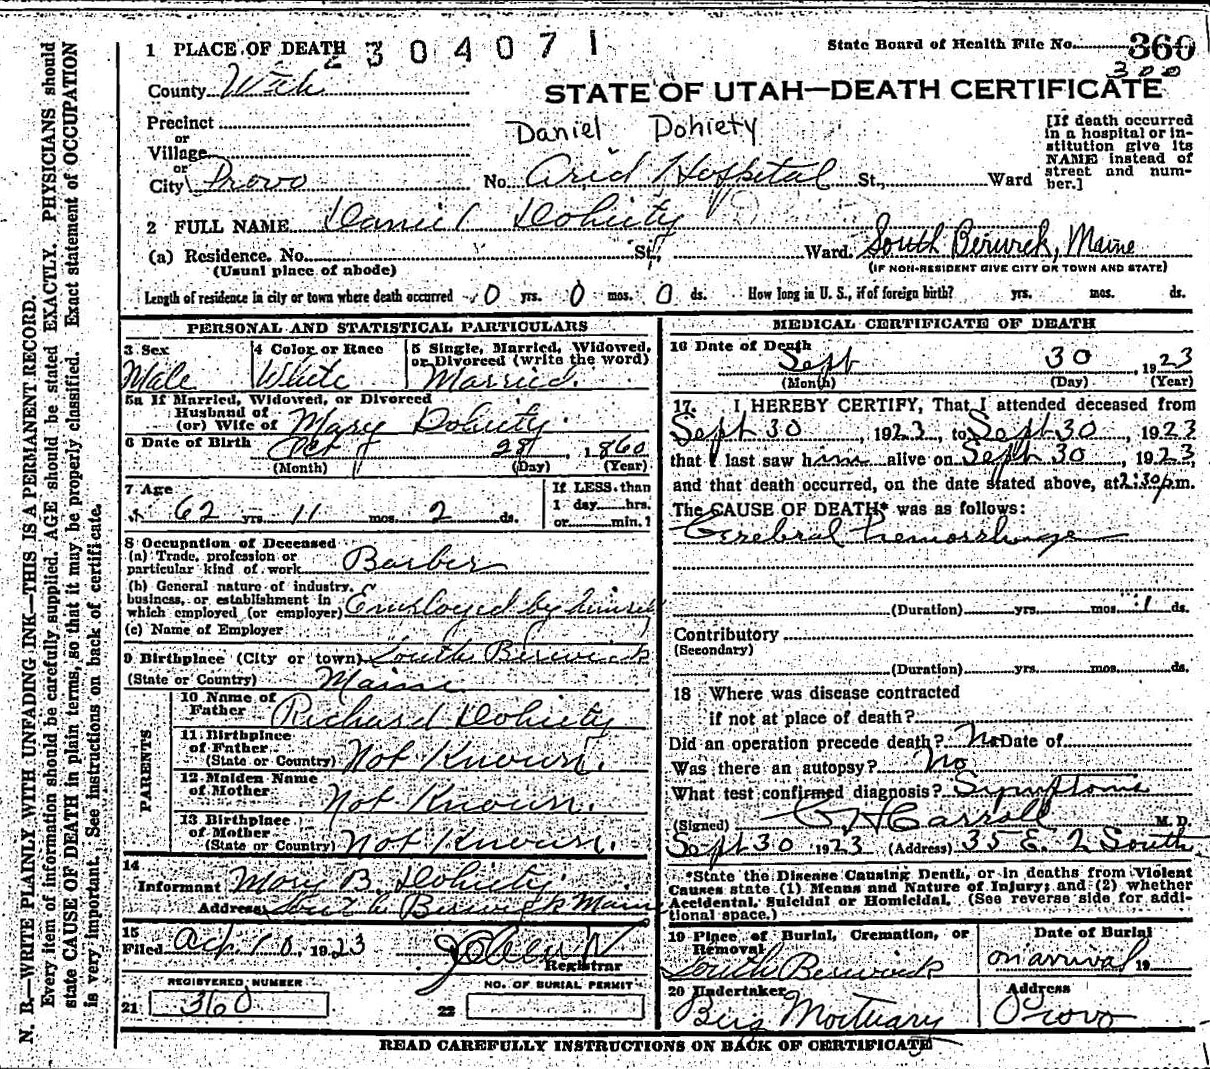 1 PLACE OF DEATH
2304071
State Board of Health File No. 360
300
County Utah
STATE OF UTAH—DEATH CERTIFICATE
Precinct
or
Village
or
City Provo
Daniel Dohiety
No. Hospital St., Ward
[If death occurred
in a hospital or in-
stitution give its
NAME instead of
street and num-
ber.]
2 FULL NAME Daniel Dohiety
(a) Residence. No. St. Ward. South Berwick, Maine
(Usual place of abode)
(IF NON-RESIDENT GIVE CITY OR TOWN AND STATE)
Length of residence in city or town where death occurred 0 yrs. 0 mos. 0 ds. How long in U. S., if of foreign birth? yrs. mos. ds.
PERSONAL AND STATISTICAL PARTICULARS
3 Sex
Male
4 Color or Race
White
5 Single, Married, Widowed,
or Divorced (write the word)
Married.
5a If Married, Widowed, or Divorced
Husband of
(or) Wife of Mary Dohiety.
6 Date of Birth Oct 28, 1860
(Month) (Day) (Year)
7 Age
62 yrs. 11 mos. 2 ds.
If LESS than
1 day hrs.
or min.?
8 Occupation of Deceased
(a) Trade, profession or
particular kind of work Barber
(b) General nature of industry,
business, or establishment in
which employed (or employer) Employed by himself
(c) Name of Employer
9 Birthplace (City or town) South Berwick
(State or Country) Maine
PARENTS
10 Name of
Father Richard Dohiety
11 Birthplace
of Father
(State or Country) Not Known.
12 Maiden Name
of Mother Not Known.
13 Birthplace
of Mother
(State or Country) Not Known.
14
Informant Mary B. Dohiety
Address South Berwick Maine
15
Filed 1923
Registrar
REGISTERED NUMBER
21 360
NO. OF BURIAL PERMIT
22
MEDICAL CERTIFICATE OF DEATH
16 Date of Death
Sept 30, 1923
(Month) (Day) (Year)
17. I HEREBY CERTIFY, That I attended deceased from
Sept 30, 1923, to Sept 30, 1923
that I last saw him alive on Sept 30, 1923,
and that death occurred, on the date stated above, at 2:30 p.m.
The CAUSE OF DEATH* was as follows:
Cerebral Hemorrhage
(Duration) yrs. mos. 1 ds.
Contributory
(Secondary)
(Duration) yrs. mos. ds.
18 Where was disease contracted
if not at place of death?
Did an operation precede death? No Date of
Was there an autopsy? No
What test confirmed diagnosis? Symptoms
(Signed) Carroll M. D.
Sept 30 1923 (Address) 35 E. 2 South
*State the Disease Causing Death, or in deaths from Violent
Causes state (1) Means and Nature of Injury; and (2) whether
Accidental, Suicidal or Homicidal. (See reverse side for addi-
tional space.)
19 Place of Burial, Cremation, or
Removal
South Berwick
Date of Burial
on arrival 19
20 Undertaker
Berg Mortuary
Address
Provo
READ CAREFULLY INSTRUCTIONS ON BACK OF CERTIFICATE
N. B.—WRITE PLAINLY WITH UNFADING INK—THIS IS A PERMANENT RECORD.
Every item of information should be carefully supplied. AGE should be stated EXACTLY. PHYSICIANS should
state CAUSE OF DEATH in plain terms, so that it may be properly classified. Exact statement of OCCUPATION
is very important. See instructions on back of certificate.